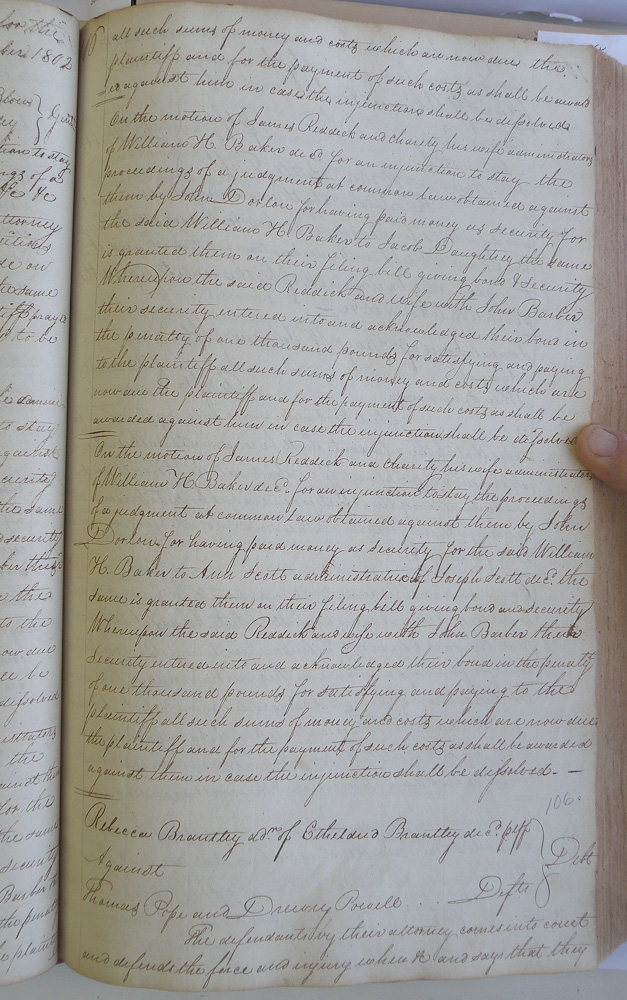 for the
ber 1802
Blow
ley
Gent
tion to stay
ngs of a
&c &c
attorney
se on
the same
tiff pray
to be
to stay
against
security
the same
security
the
to the
now due
be
dissolved
the
for the
the same
security
Barber to
the penalty
plaintiff
15 all such sums of money and costs which are now due the
plaintiff and for the payment of such costs as shall be award
ed against him in case the injunction shall be dissolved
On the motion of James Reddick and Charity his wife administrators
of William H. Baker decd. for an injunction to stay the
proceedings of a judgment at common law obtained against
them by John Dorlon for having paid money as security for
the said William H. Baker to Jacob Daughtrey the same
is granted them on their filing bill giving bond & security
Whereupon the said Reddick and wife with John Barber
their security entered into and acknowledged their bond in
the penalty of one thousand pounds for satisfying and paying
to the plaintiff all such sums of money and costs which are
now due the plaintiff and for the payment of such costs as shall be
awarded against him in case the injunction shall be dissolved
On the motion of James Reddick and Charity his wife administrators
of William H Baker decd. for an injunction to stay the proceedings
of a judgment at common law obtained against them by John
Dorlon for having paid money as security for the said William
H. Baker to Ann Scott administratrix of Joseph Scott decd. the
same is granted them on their filing bill giving bond and security
Whereupon the said Reddick and wife with John Barber their
security entered into and acknowledged their bond in the penalty
of one thousand pounds for satisfying and paying to the
plaintiff all such sums of money and costs which are now due
the plaintiff and for the payment of such costs as shall be awarded
against them in case the injunction shall be dissolved. —
106.
Rebecca Brantley adrx. of Etheldred Brantley decd. plff
Against
Debt
Thomas Pope and Drewry Powell . . . Defts
The defendants by their attorney comes into court
and defends the force and injury when &c and says that they